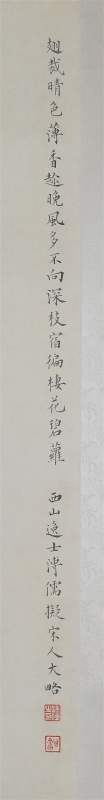 翅裁晴色薄香趂晚風多不向深枝宿徧棲花碧蘿 西山逸士溥儒擬宋人大略